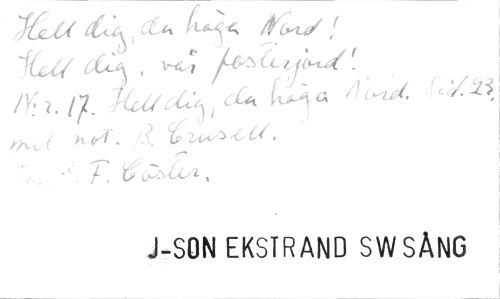 Hell dig, du höga Nord!
Hell dig, vår fosterjord!
N:r. 17. Hell dig, du höga Nord. Sid. 23.
mel not. B. Crusell.
F. Cöster.
J-SON EKSTRAND SWSÅNG